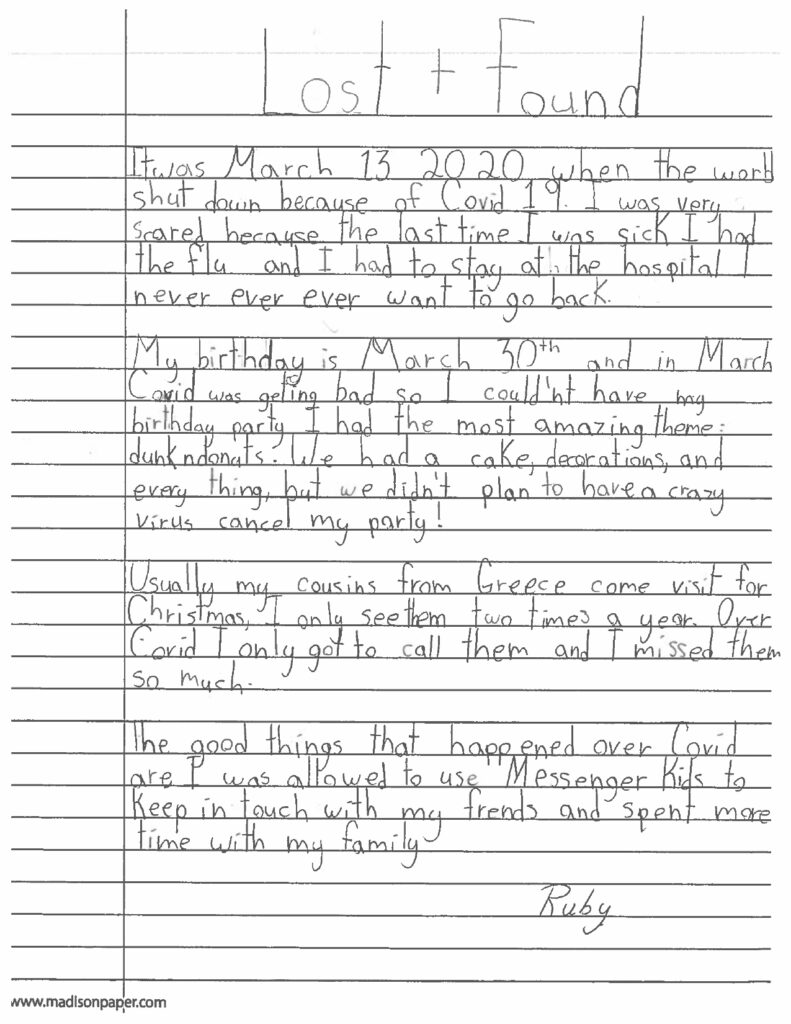 Lost + Found
It was March 13 2020 when the world
shut down because of Covid 19. I was very
scared because the last time I was sick I had
the flu and I had to stay at the hospital I
never ever ever want to go back.
My birthday is March 30th and in March
Covid was geting bad so I could'nt have my
birthday party I had the most amazing theme:
dunkndonuts. We had a cake, decorations, and
every thing, but we didn't plan to have a crazy
virus cancel my party!
Usually my cousins from Greece come visit for
Christmas, I only see them two times a year. Over
Covid I only got to call them and I missed them
so much.
The good things that happened over Covid
are I was allowed to use Messenger Kids to
Keep in touch with my frends and spent more
time with my family
Ruby
www.madisonpaper.com